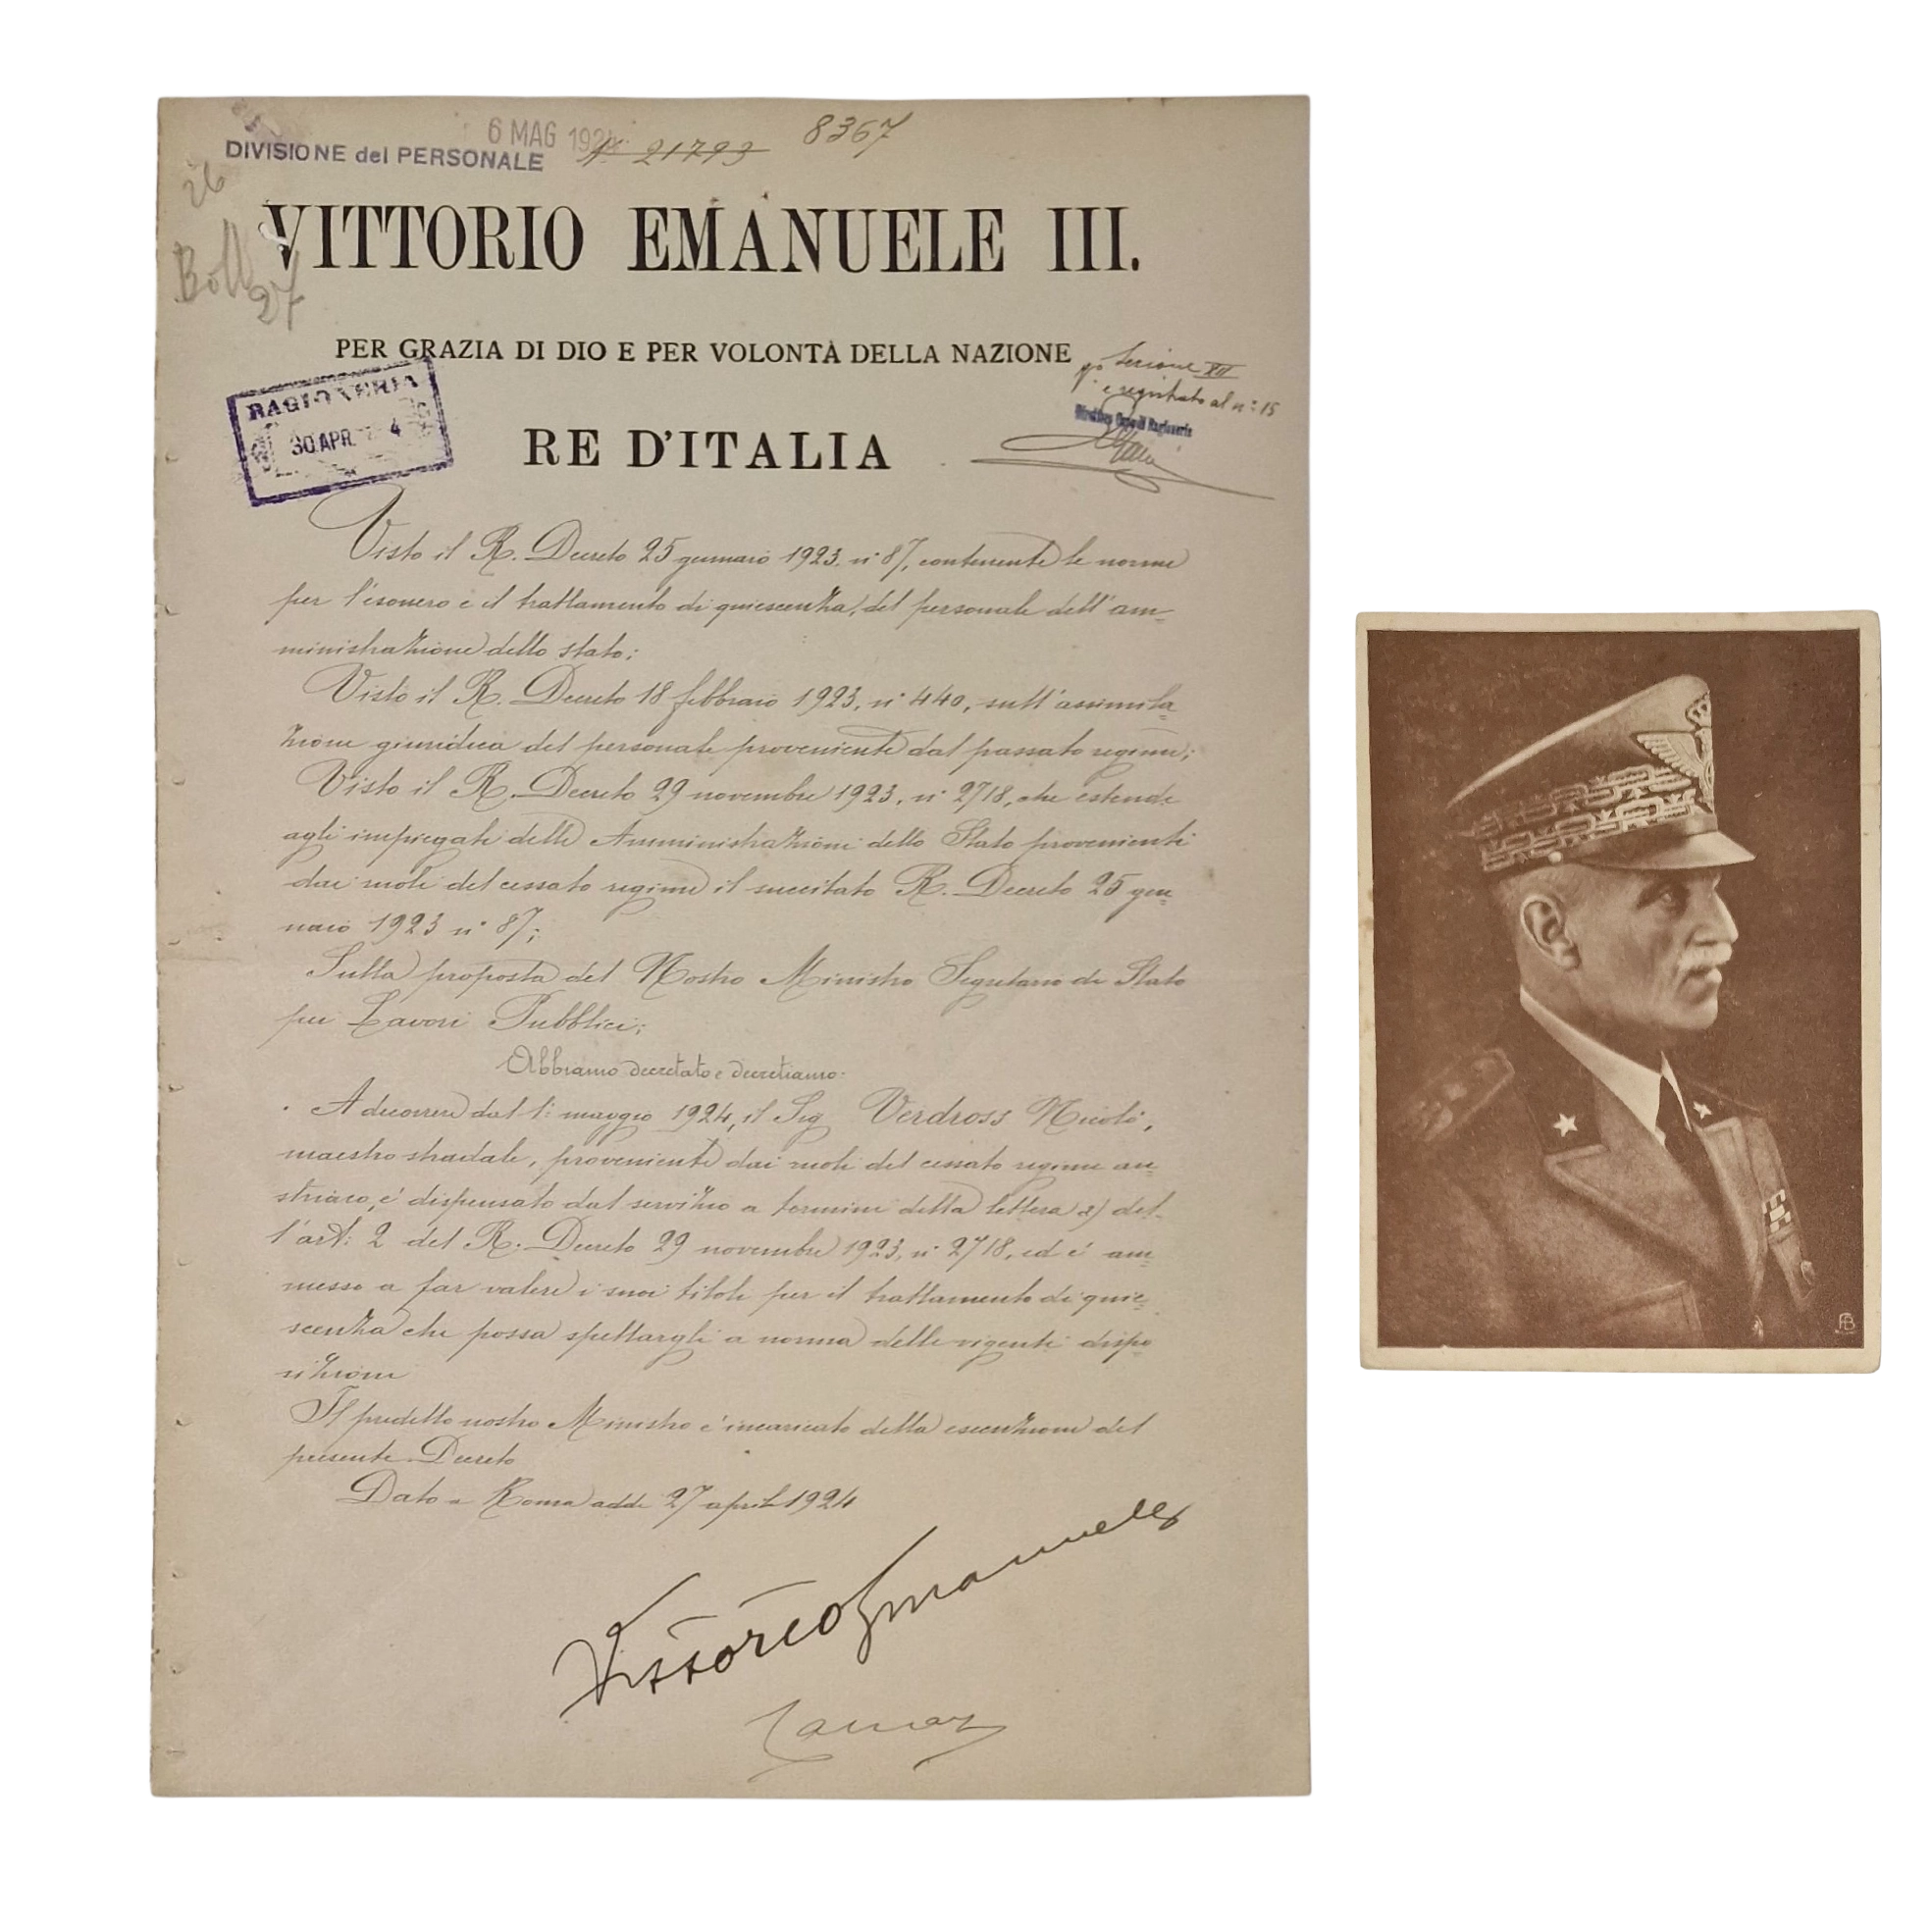 6 MAG 192
DIVISIONE del PERSONALE
N° 21793
8367
26
Boll
27
VITTORIO EMANUELE III.
PER GRAZIA DI DIO E PER VOLONTÀ DELLA NAZIONE
RE D'ITALIA
RAGIONERIA
30.APR. 4
Sezione XII
e registrato al n: 15
Direttore Capo di Ragioneria
Visto il R. Decreto 25 gennaio 1923. n° 87, contenente le norme
per l'esonero e il trattamento di quiescenza, del personale dell'am=
ministrazione dello stato;
Visto il R. Decreto 18 febbraio 1923, n° 440, sull'assimila=
zione giuridica del personale proveniente dal passato regime;
Visto il R. Decreto 29 novembre 1923, n° 2718, che estende
agli impiegati delle Amministrazioni dello Stato provenienti
dai ruoli del cessato regime il succitato R. Decreto 25 gen=
naio 1923 n° 87;
Sulla proposta del Nostro Ministro Segretario di Stato
pei Lavori Pubblici;
Abbiamo decretato e decretiamo:
A decorrere dal 1: maggio 1924, il Sig Verdross Nicolò,
maestro stradale, proveniente dai ruoli del cessato regime au=
striaco, e' dispensato dal servizio a termini della lettera a) del=
l'art: 2 del R. Decreto 29 novembre 1923, n° 2718, ed e' am=
messo a far valere i suoi titoli per il trattamento di quie=
scenza che possa spettargli a norma delle vigenti dispo
sizioni
Il predetto nostro Ministro e' incaricato della esecuzione del
presente Decreto
Dato a Roma addi 27 aprile 1924
Vittorio Emanuele
AB